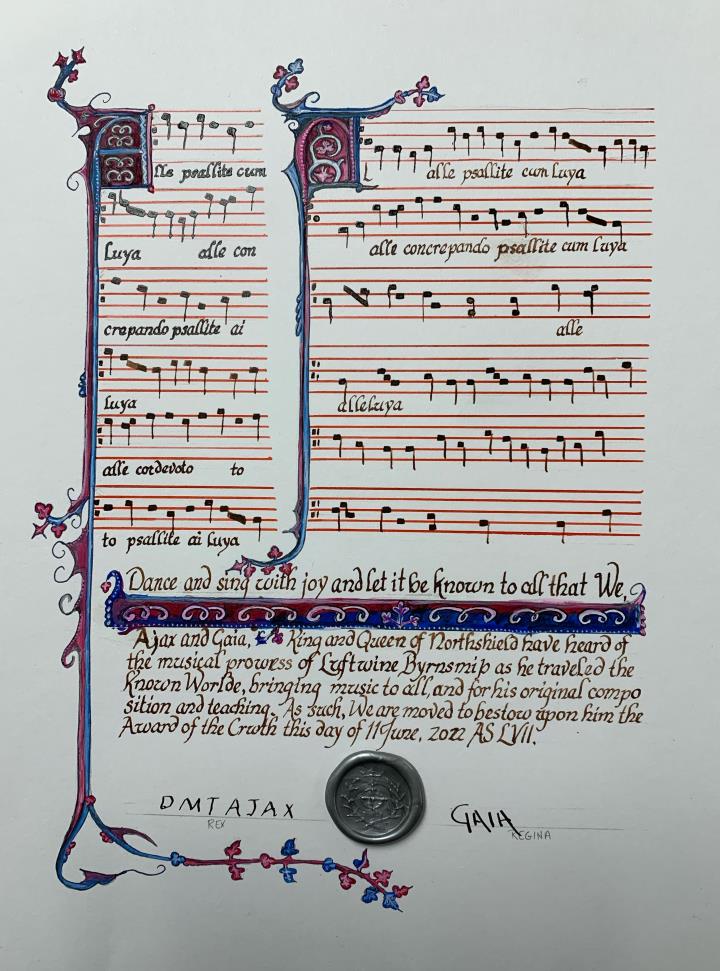 Alle psallite cum
luya alle con
crepando psallite ai
luya
alle cordevoto to
to psallite ai luya
alle psallite cum luya
alle concrepando psallite cum luya
alle
alleluya
Dance and sing with joy and let it be known to all that We,
Ajax and Gaia, King and Queen of Northshield have heard of
the musical prowess of Lyftwine Byrnsmiþ as he traveled the
Known Worlde, bringing music to all, and for his original compo
sition and teaching. As such, We are moved to bestow upon him the
Award of the Crwth this day of 11 June, 2022 AS LVII.
DMTAJAX GAIA
REX REGINA